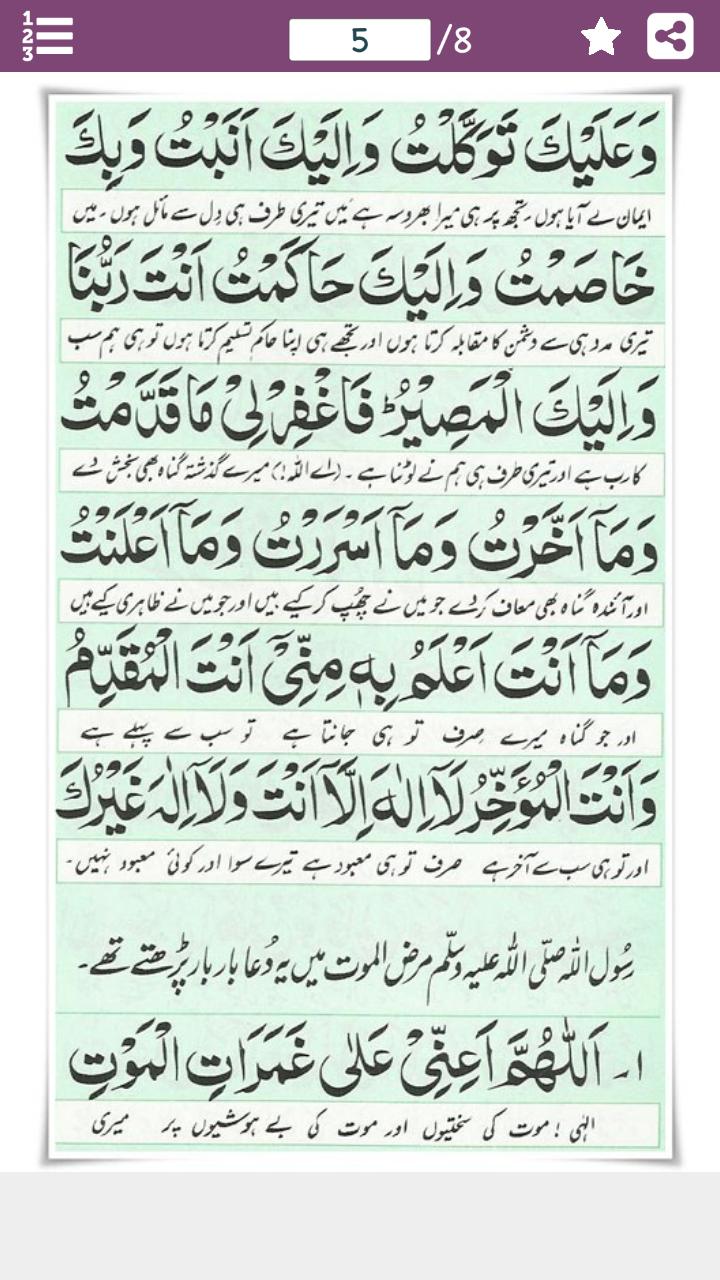 1
2
3
5 /8
وَعَلَيْكَ تَوَكَّلْتُ وَاِلَيْكَ اَنَبْتُ وَبِكَ
ایمان لے آیا ہوں۔ تجھ پر ہی میرا بھروسہ ہے میں تیری طرف ہی دل سے مائل ہوں۔ میں
خَاصَمْتُ وَاِلَيْكَ حَاكَمْتُ اَنْتَ رَبُّنَا
تیری مدد ہی سے دشمن کا مقابلہ کرتا ہوں اور تجھے ہی اپنا حاکم تسلیم کرتا ہوں تو ہی ہم سب
وَاِلَيْكَ الْمَصِيْرُ فَاغْفِرْ لِیْ مَا قَدَّمْتُ
کا رب ہے اور تیری طرف ہی ہم نے لوٹنا ہے ۔ (اے اللہ!) میرے گذشتہ گناہ بھی بخش دے
وَمَآ اَخَّرْتُ وَمَآ اَسْرَرْتُ وَمَآ اَعْلَنْتُ
اور آئندہ گناہ بھی معاف کر دے جو میں نے چھپ کر کیے ہیں اور جو میں نے ظاہری کیے ہیں
وَمَآ اَنْتَ اَعْلَمُ بِهٖ مِنِّیْٓ اَنْتَ الْمُقَدِّمُ
اور جو گناہ میرے صِرف تو ہی جانتا ہے تو سب سے پہلے ہے
وَاَنْتَ الْمُؤَخِّرُ لَآ اِلٰهَ اِلَّآ اَنْتَ وَلَآ اِلٰهَ غَيْرُكَ
اور تو ہی سب سے آخر ہے صرف تو ہی معبود ہے تیرے سوا اور کوئی معبود نہیں۔
رسُول اللہ صلّی اللہ علیہ وسلّم مرض الموت میں یہ دُعا بار بار پڑھتے تھے۔
۱۔ اَللّٰهُمَّ اَعِنِّیْ عَلٰی غَمَرَاتِ الْمَوْتِ
الٰہی ! موت کی سختیوں اور موت کی بے ہوشیوں پر میری